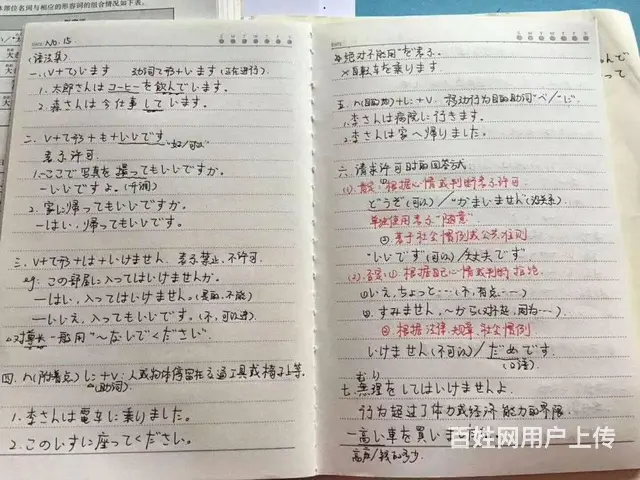 体部位名词与相应的形容词的组合情况如下表。
No. 15
(语法集)
一.(V+て)います 动词て形+います(正在进行)
1. 太郎さんはコーヒーを飲んでいます。
2. 森さんは今仕事しています。
二. V+て形+も+いいです
"好/可以"
表示许可.
1. ここで写真を撮ってもいいですか。
—いいですよ。(升调)
2. 家に帰ってもいいですか。
—はい, 帰ってもいいです。
三. V+て形+は+いけません. 表示禁止,不许可.
eg: この部屋に入ってはいけませんか.
—はい, 入ってはいけません.(是的,不能)
—いいえ, 入ってもいいです.(不,可以进)
△对尊长一般用"~ないでください"
四. N(附着点)に+V: 人或物体停留在交通工具或椅子上等.
(助词)
1. 李さんは電車に乗りました。
2. このいすに座ってください。
绝对不能用"を"表示.
×自転車を乗ります
五. N(目的地)+に+V: 移动行为目的助词"へ"/"に"
1. 李さんは病院に行きます.
2. 李さんは家へ帰りました.
六. 请求许可时的回答方式.
(1) 肯定 ①根据心情或判断表示许可
どうぞ(可以)/"かまいません(没关系)
单独使用表示"随意"
② 基于社会惯例或公共准则
"いいです(可以)/大丈夫です
(2) 否定 ① 根据自己心情或判断拒绝
いいえ, ちょっと…(不, 有点……)
すみません, ~から(对不起, 因为…)
② 根据法律, 规章, 社会惯例
いけません(不可以)/だめです.
(口语)
むり
七. 無理をしてはいけませんよ
行为超过了体力或经济能力的界限.
—高い車を買います
百姓网用户上传